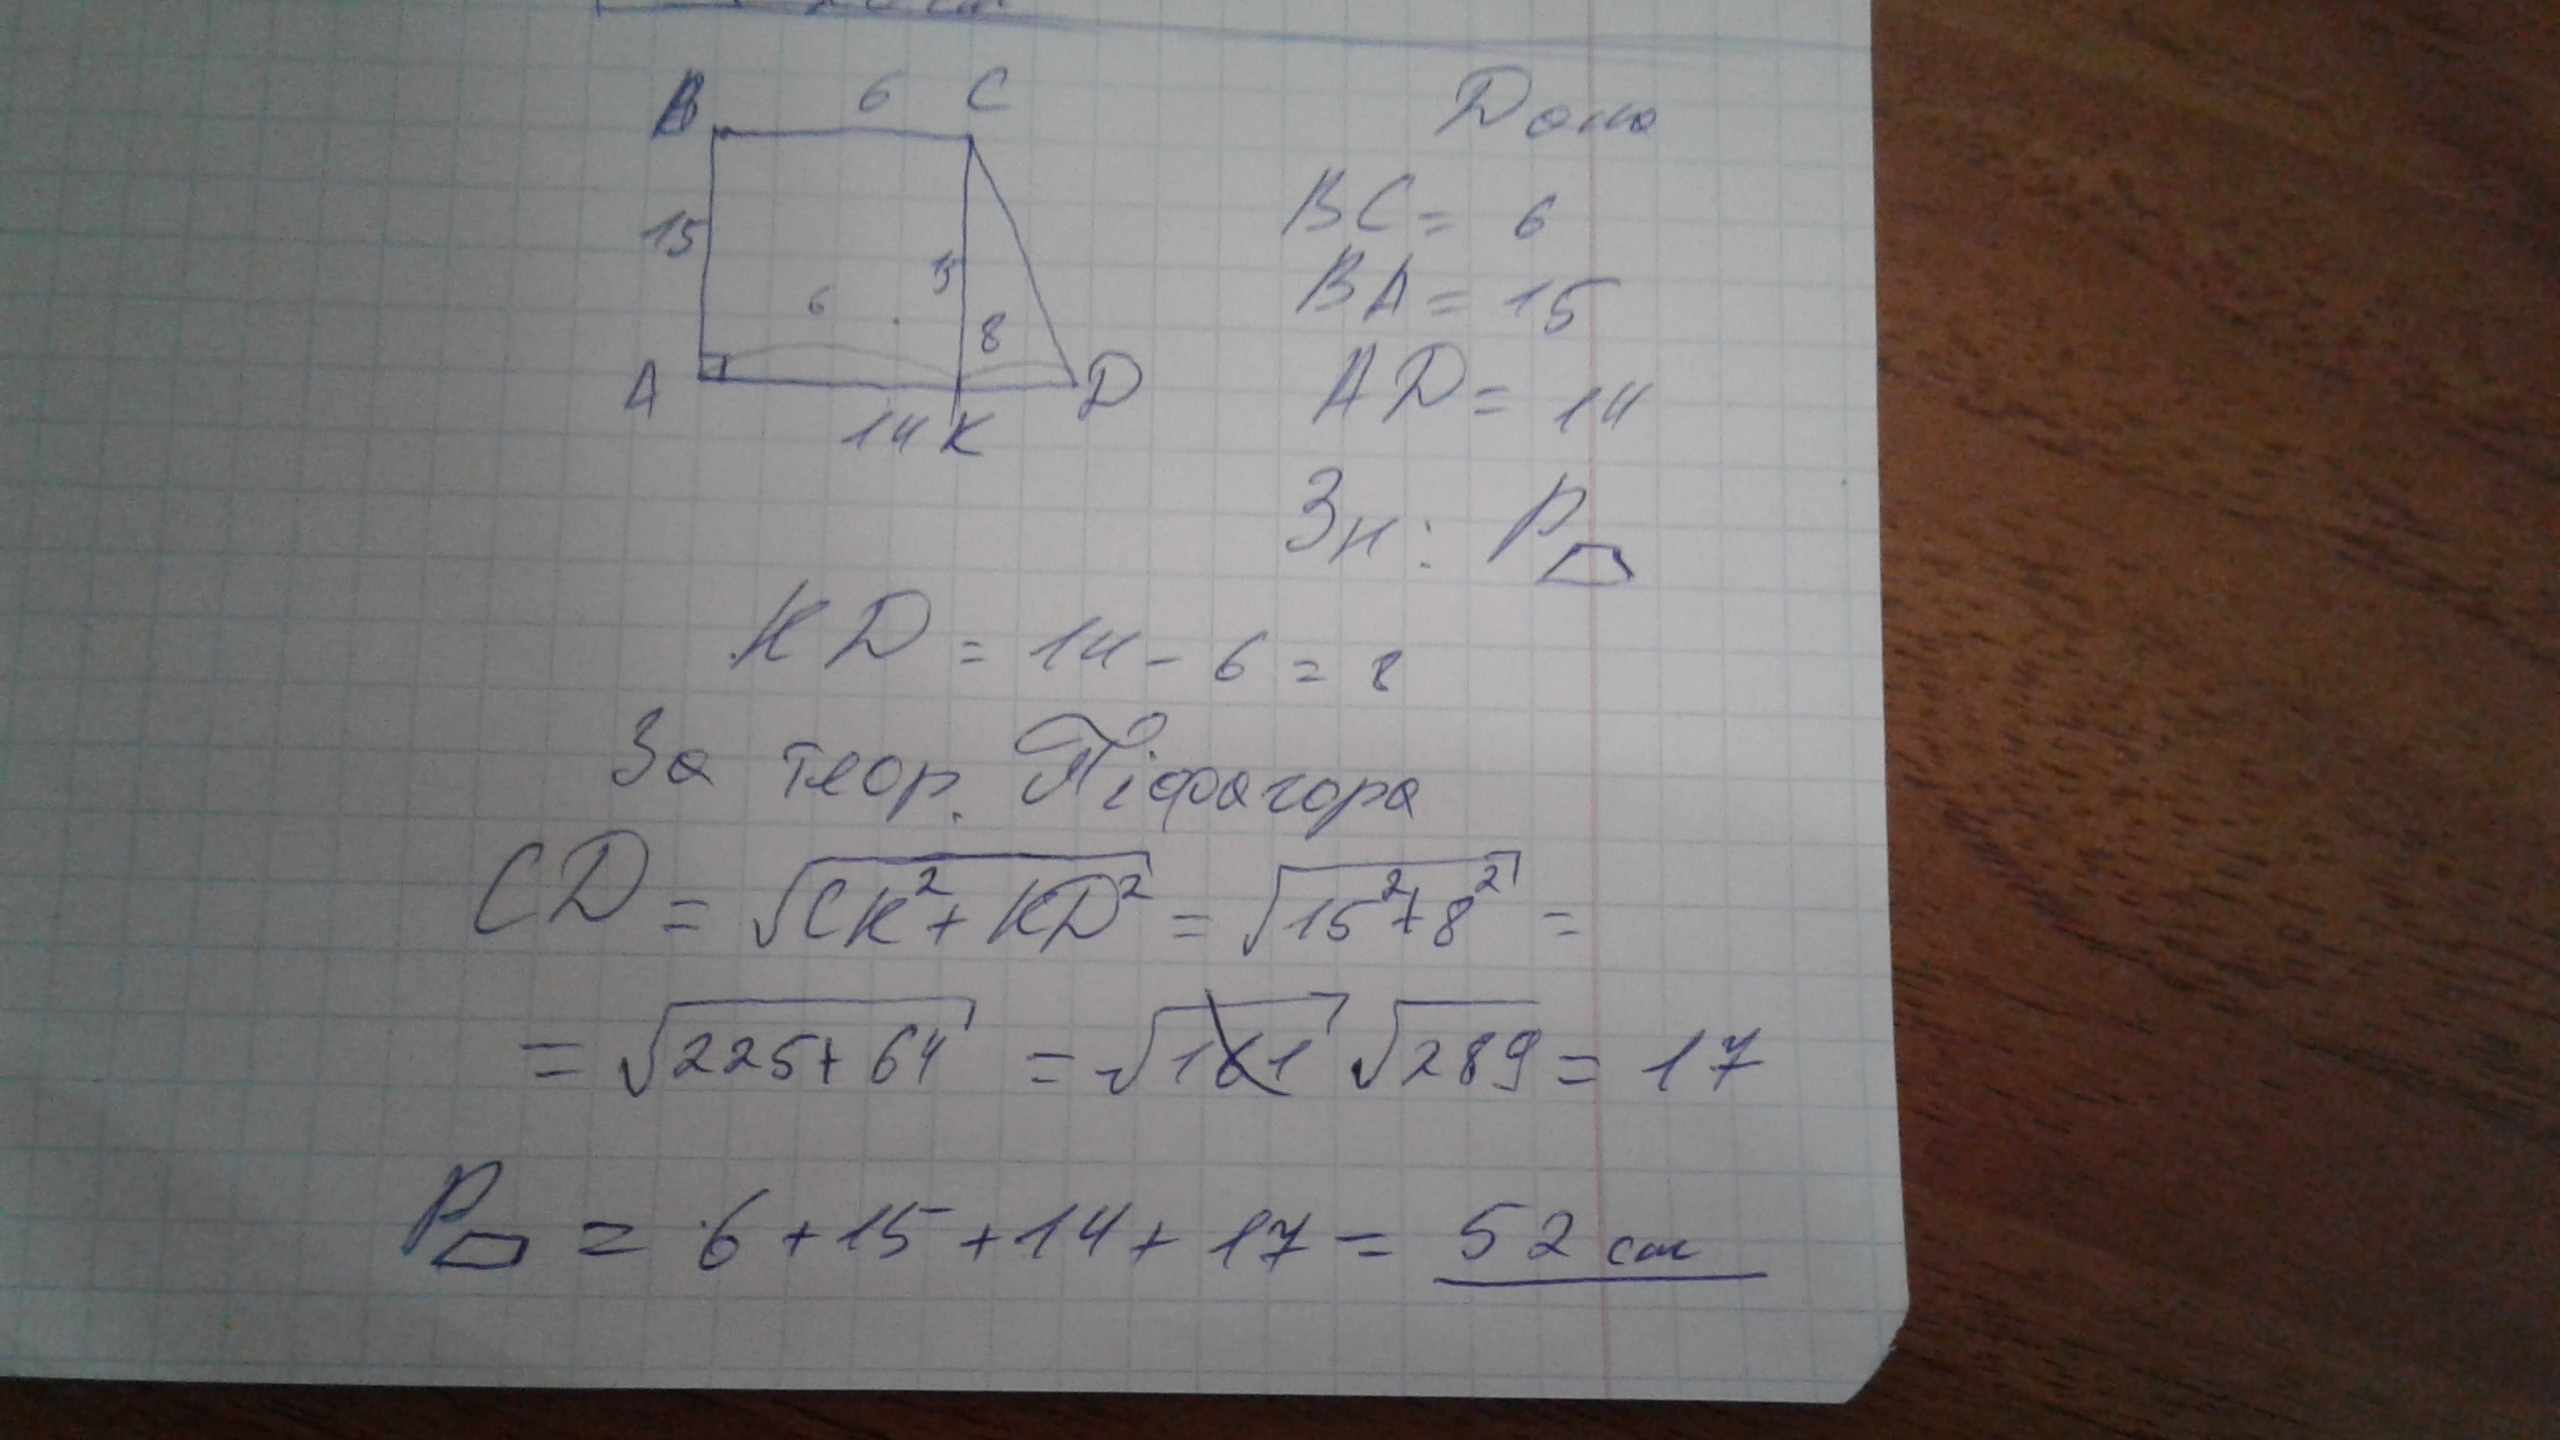 B 6 C
15
15
6
8
A
D
14 K
Дано
BC = 6
BA = 15
AD = 14
Зн: P▱
KD = 14 - 6 = 8
За теор. Піфагора
CD = √CK² + KD² = √15² + 8² =
= √225 + 64 = √161 √289 = 17
P▱ = 6 + 15 + 14 + 17 = 52 см